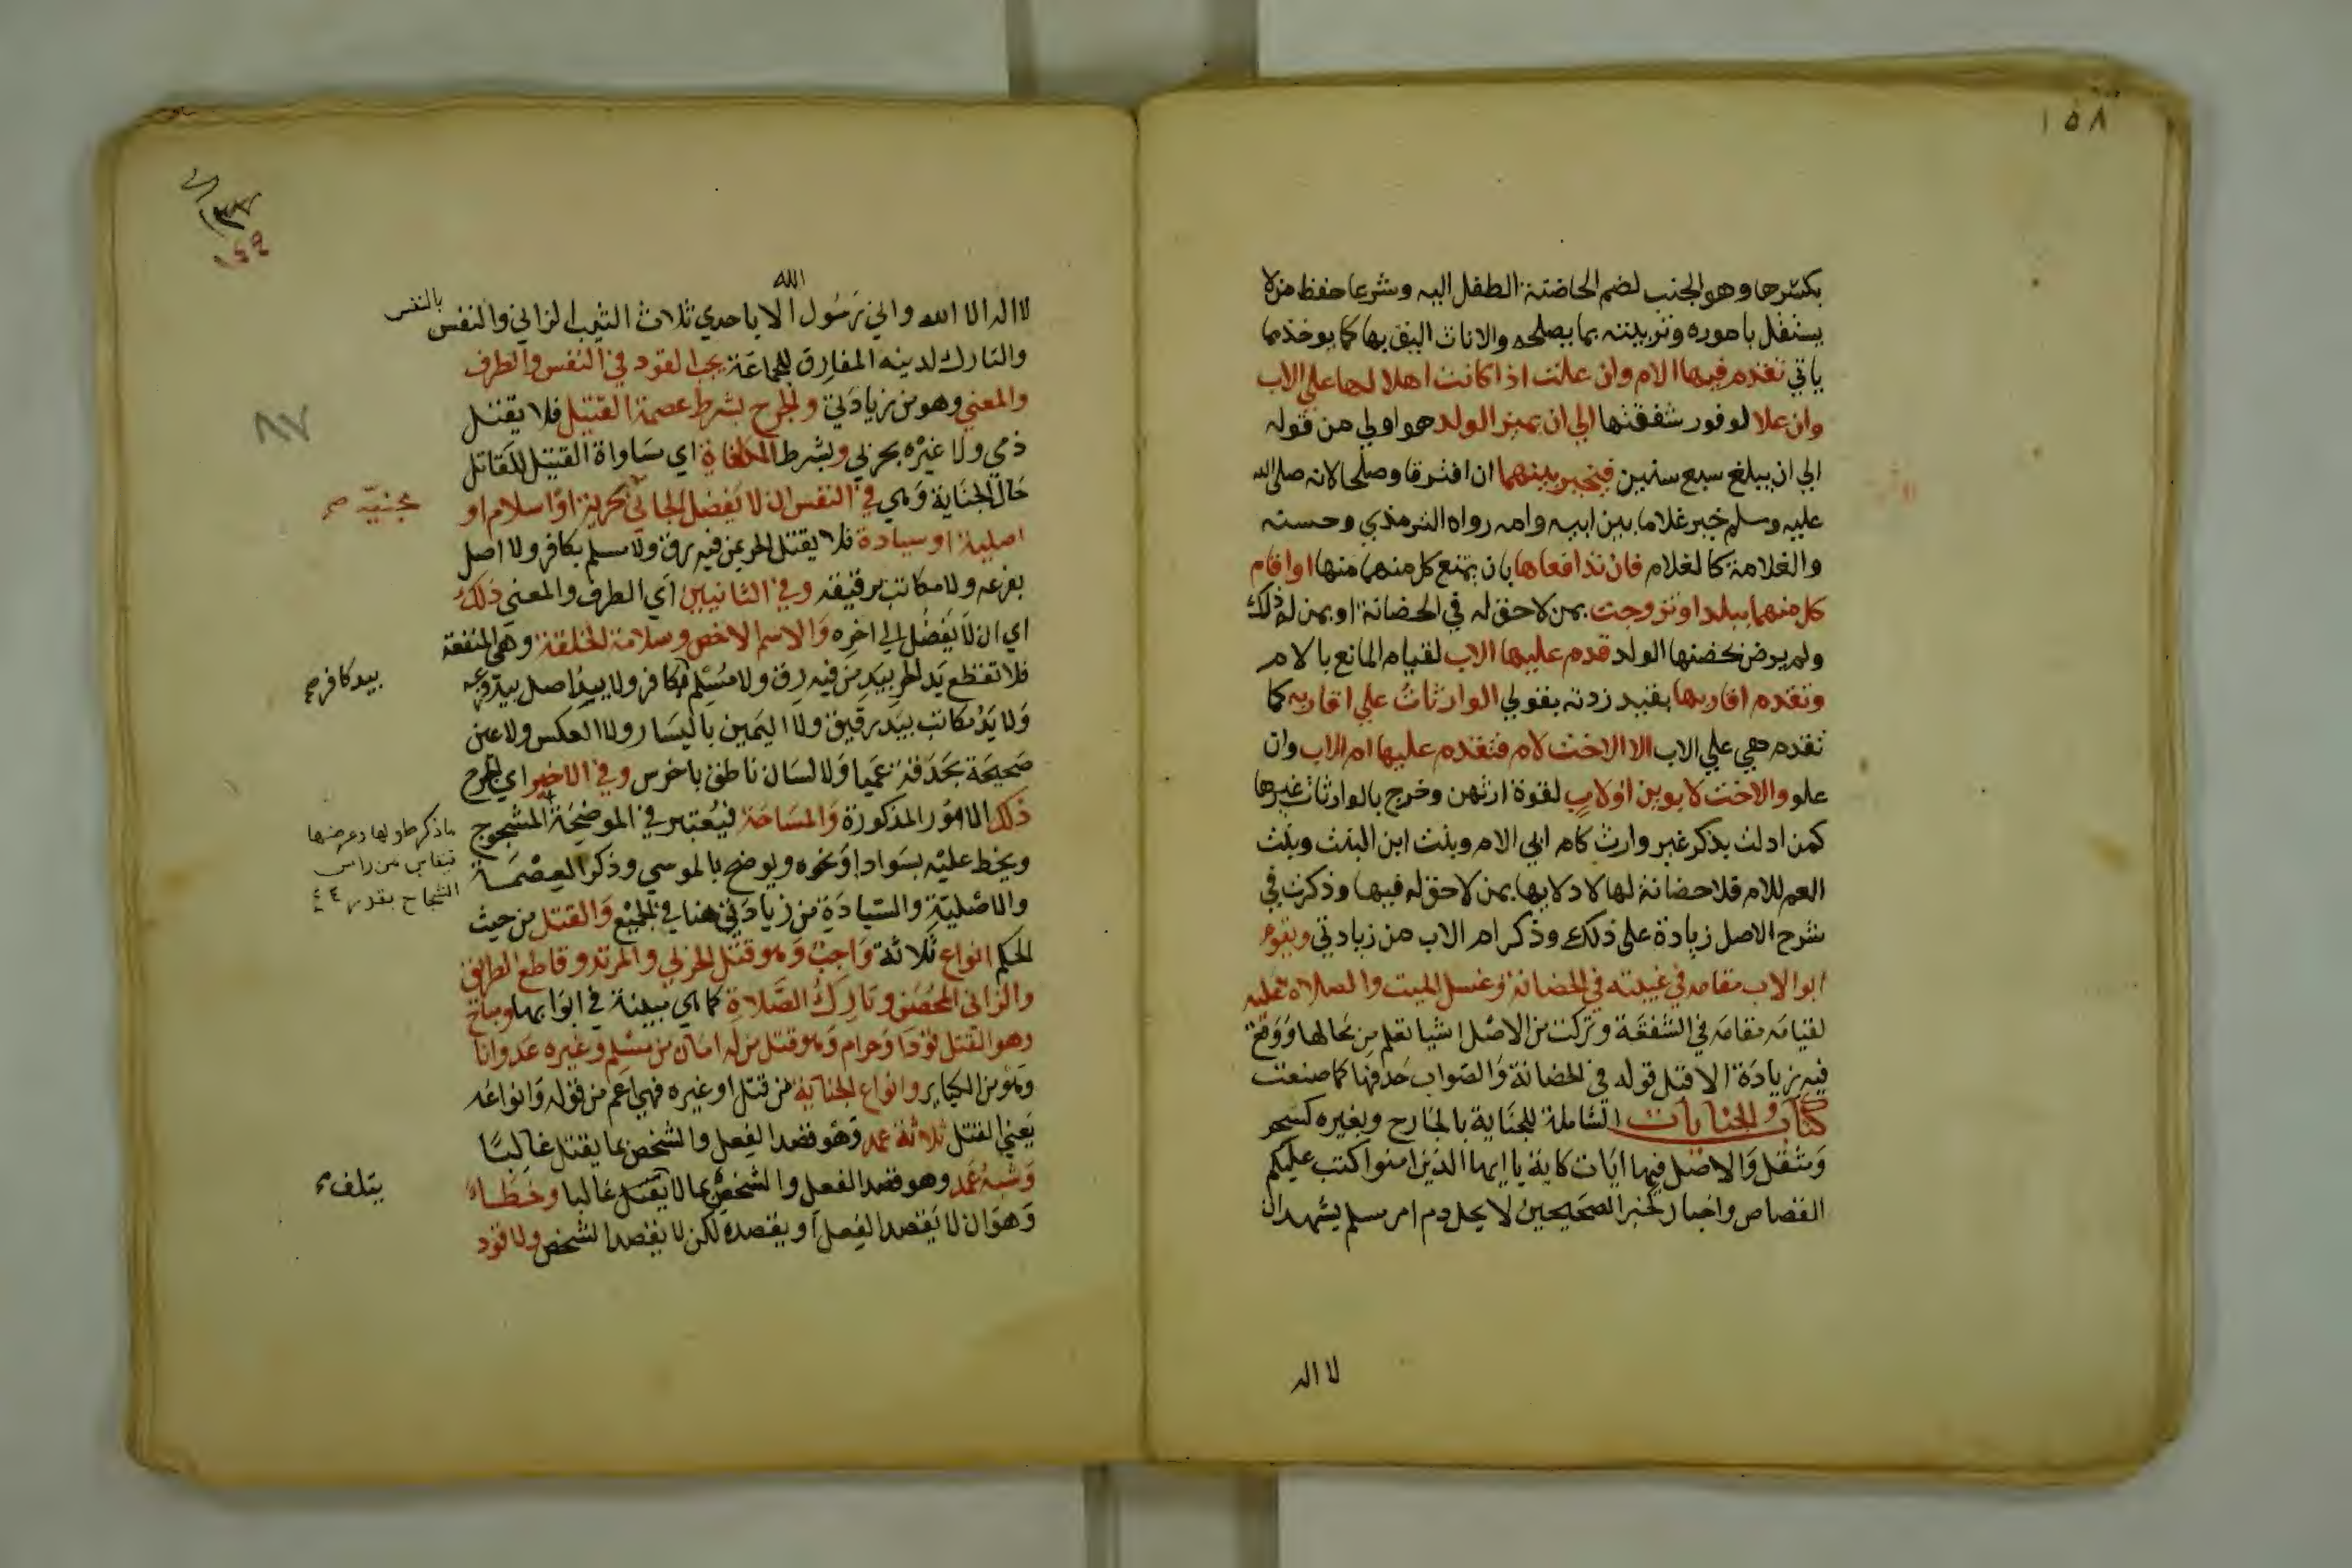 ١٥٨
بكسرها وهو الجنب لضم الحاضنة الطفل اليه وشرعا حفظ من لا
يستقل باموره وتربيته بما يصلحه والاناث اليق بها كما يوخذ مما
ياتي تقدم فيها الام وان علت اذا كانت اهلا لها على الاب
وان علا لوفور شفقتها الي ان يميز الولد هو اولي من قوله
الي ان يبلغ سبع سنين فيخير بينهما ان افترقا وصلحا لانه صلى الله
عليه وسلم خير غلاما بين ابيه وامه رواه الترمذي وحسنه
والغلامة كالغلام فان تدافعاها بان يمتنع كل منهما منها او اقام
كل منهما ببلد او تزوجت بمن لا حق له في الحضانة او بمن له ذلك
ولم يرض بحضنها الولد قدم عليها الاب لقيام المانع بالام
وتقدم اقاربها بقيد زدته بقولي الوارثات علي اقاربه كما
تقدم هي علي الاب الا الاخت لام فتقدم عليها ام الاب وان
علو والاخت لابوين او لاب لقوة ارثهن وخرج بالوارثات غيرها
كمن ادلت بذكر غير وارث كام ابي الام وبنت ابن البنت وبنت
العم للام فلا حضانة لها لادلايها بمن لا حق له فيها وذكرت في
شرح الاصل زيادة على ذلك وذكر ام الاب من زيادتي ويقوم
ابو الاب مقامه في غيبته في الحضانة وغسل الميت والصلاة عليه
لقيامه مقامه في الشفقة وتركت من الاصل اشيا تعلم من محالها ووقع
فيه زيادة الا قبل قوله في الحضانة والصواب حذفها كما صنعت
كتاب الجنايات الشاملة للجناية بالجارح وبغيره كسحر
ومثقل والاصل فيها ايات كاية يا ايها الذين امنوا كتب عليكم
القصاص واخبار كخبر الصحيحين لا يحل دم امر مسلم يشهد ان
لا اله
١٥٩
٨٧
لا اله الا الله واني رسول الله الا باحدي ثلاث الثيب الزاني والنفس بالنفس
والتارك لدينه المفارق للجماعة يجب القود في النفس والطرف
والمعني وهو من زيادتي والجرح بشرط عصمة القتيل فلا يقتل
ذمي ولا غيره بحربي وبشرط المكافاة اي مساواة القتيل للقاتل
حال الجناية وهي في النفس ان لا يفضل الجاني بحرية او اسلام او
مجنيه صح
اصلية او سيادة فلا يقتل الحر بمن فيه رق ولا مسلم بكافر ولا اصل
بفرعه ولا مكاتب برقيقه وفي الثانيين اي الطرف والمعني ذلك
اي ان لا يفضل الي اخره والاسم الاخص وسلامة الخلقة وهي المنفعة
فلا تقطع يد الحر بيد من فيه رق ولا مسلم بكافر ولا يد اصل بيد فرعه
بيد كافر صح
ولا يد مكاتب بيد رقيق ولا اليمين باليسار ولا العكس ولا عين
صحيحة بحدقة عميا ولا لسان ناطق باخرس وفي الاخير اي الجرح
ذلك الامور المذكورة والمساحة فيعتبر في الموضحة المشجوج
ما ذكر طولها وعرضها
فيقاس من راس
الشجاج بقدرها
ويخط عليه بسواد او نحوه ويوضح بالموسي وذكر العصمة
والاصلية والسيادة من زيادتي هنا في الجميع والقتل من حيث
الحكم انواع ثلاثة واجب وهو قتل الحربي والمرتد وقاطع الطريق
والزاني المحصن وتارك الصلاة كما هي مبينة في ابوابها ومباح
وهو القتل قودا وحرام وهو قتل من له امان من مسلم وغيره عدوانا
وهو من الكباير وانواع الجناية من قتل او غيره فهي اعم من قوله وانواعه
يعني القتل ثلاثة عمد وهو قصد الفعل والشخص بما يقتل غالبا
وشبه عمد وهو قصد الفعل والشخص بما لا يقتل غالبا وخطاء
يتلف صح
وهو ان لا يقصد الفعل او يقصده لكن لا يقصد الشخص ولا قود